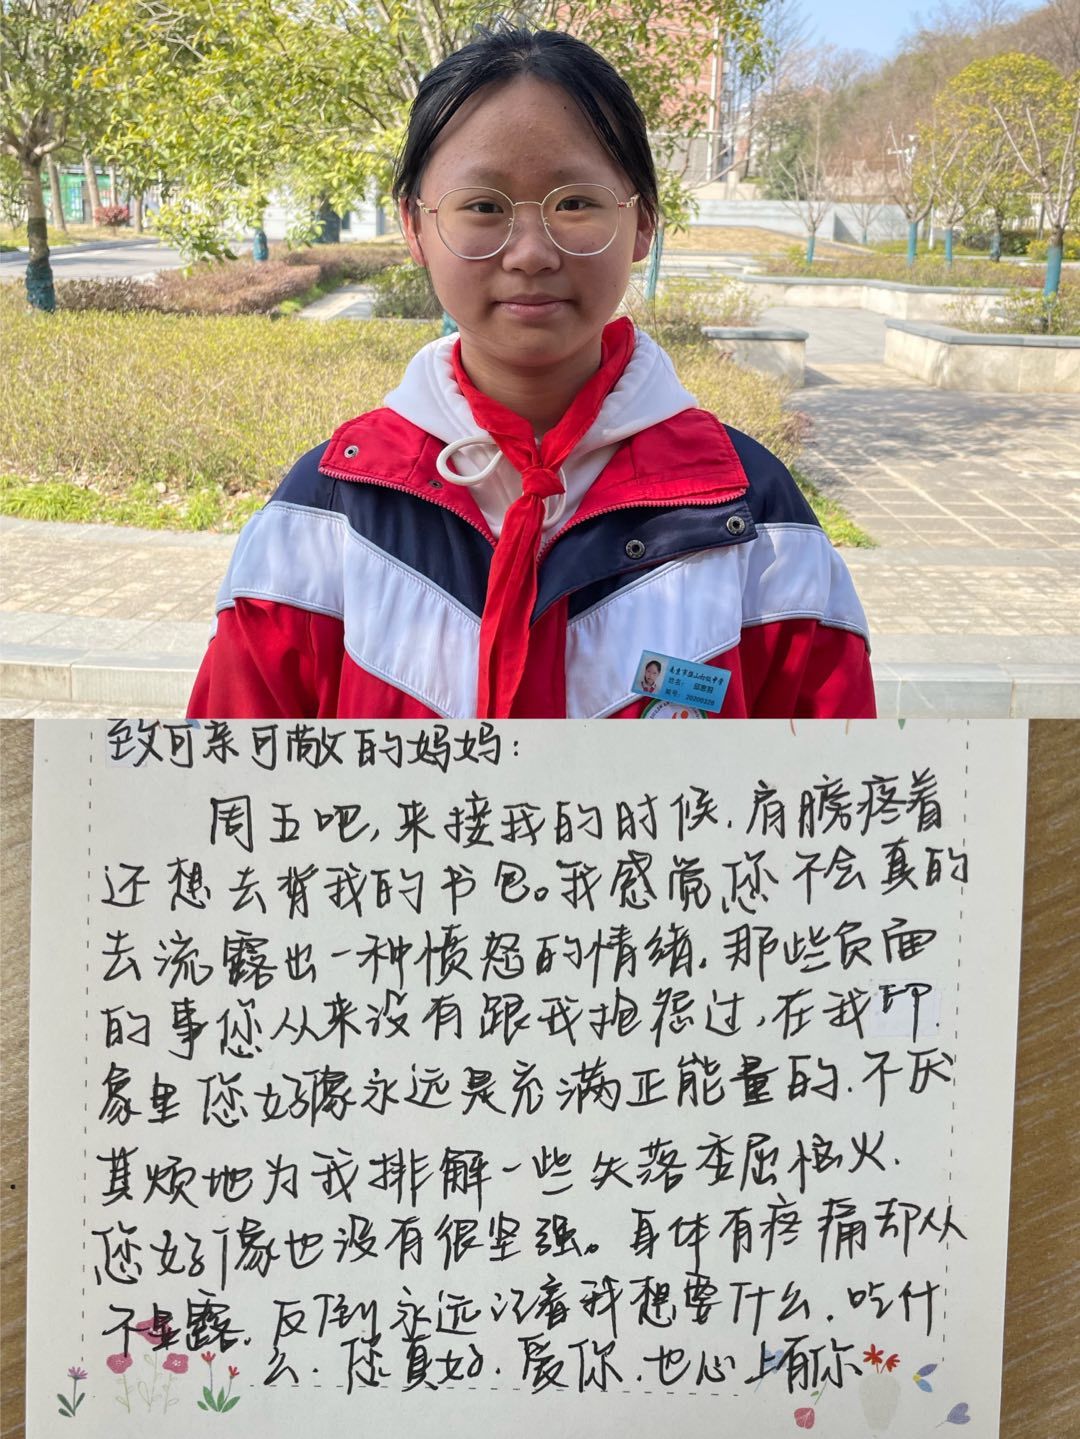 姓名：
编号：20200328
致可亲可敬的妈妈：
周五吧，来接我的时候，肩膀疼着
还想去背我的书包。我感觉您不会真的
去流露出一种愤怒的情绪，那些负面
的事您从来没有跟我抱怨过，在我印
象里您好像永远是充满正能量的，不厌
其烦地为我排解一些失落委屈恼火，
您好像也没有很坚强。身体有疼痛却从
不显露，反倒永远记着我想要什么，吃什
么，您真好，爱你，也心上有你